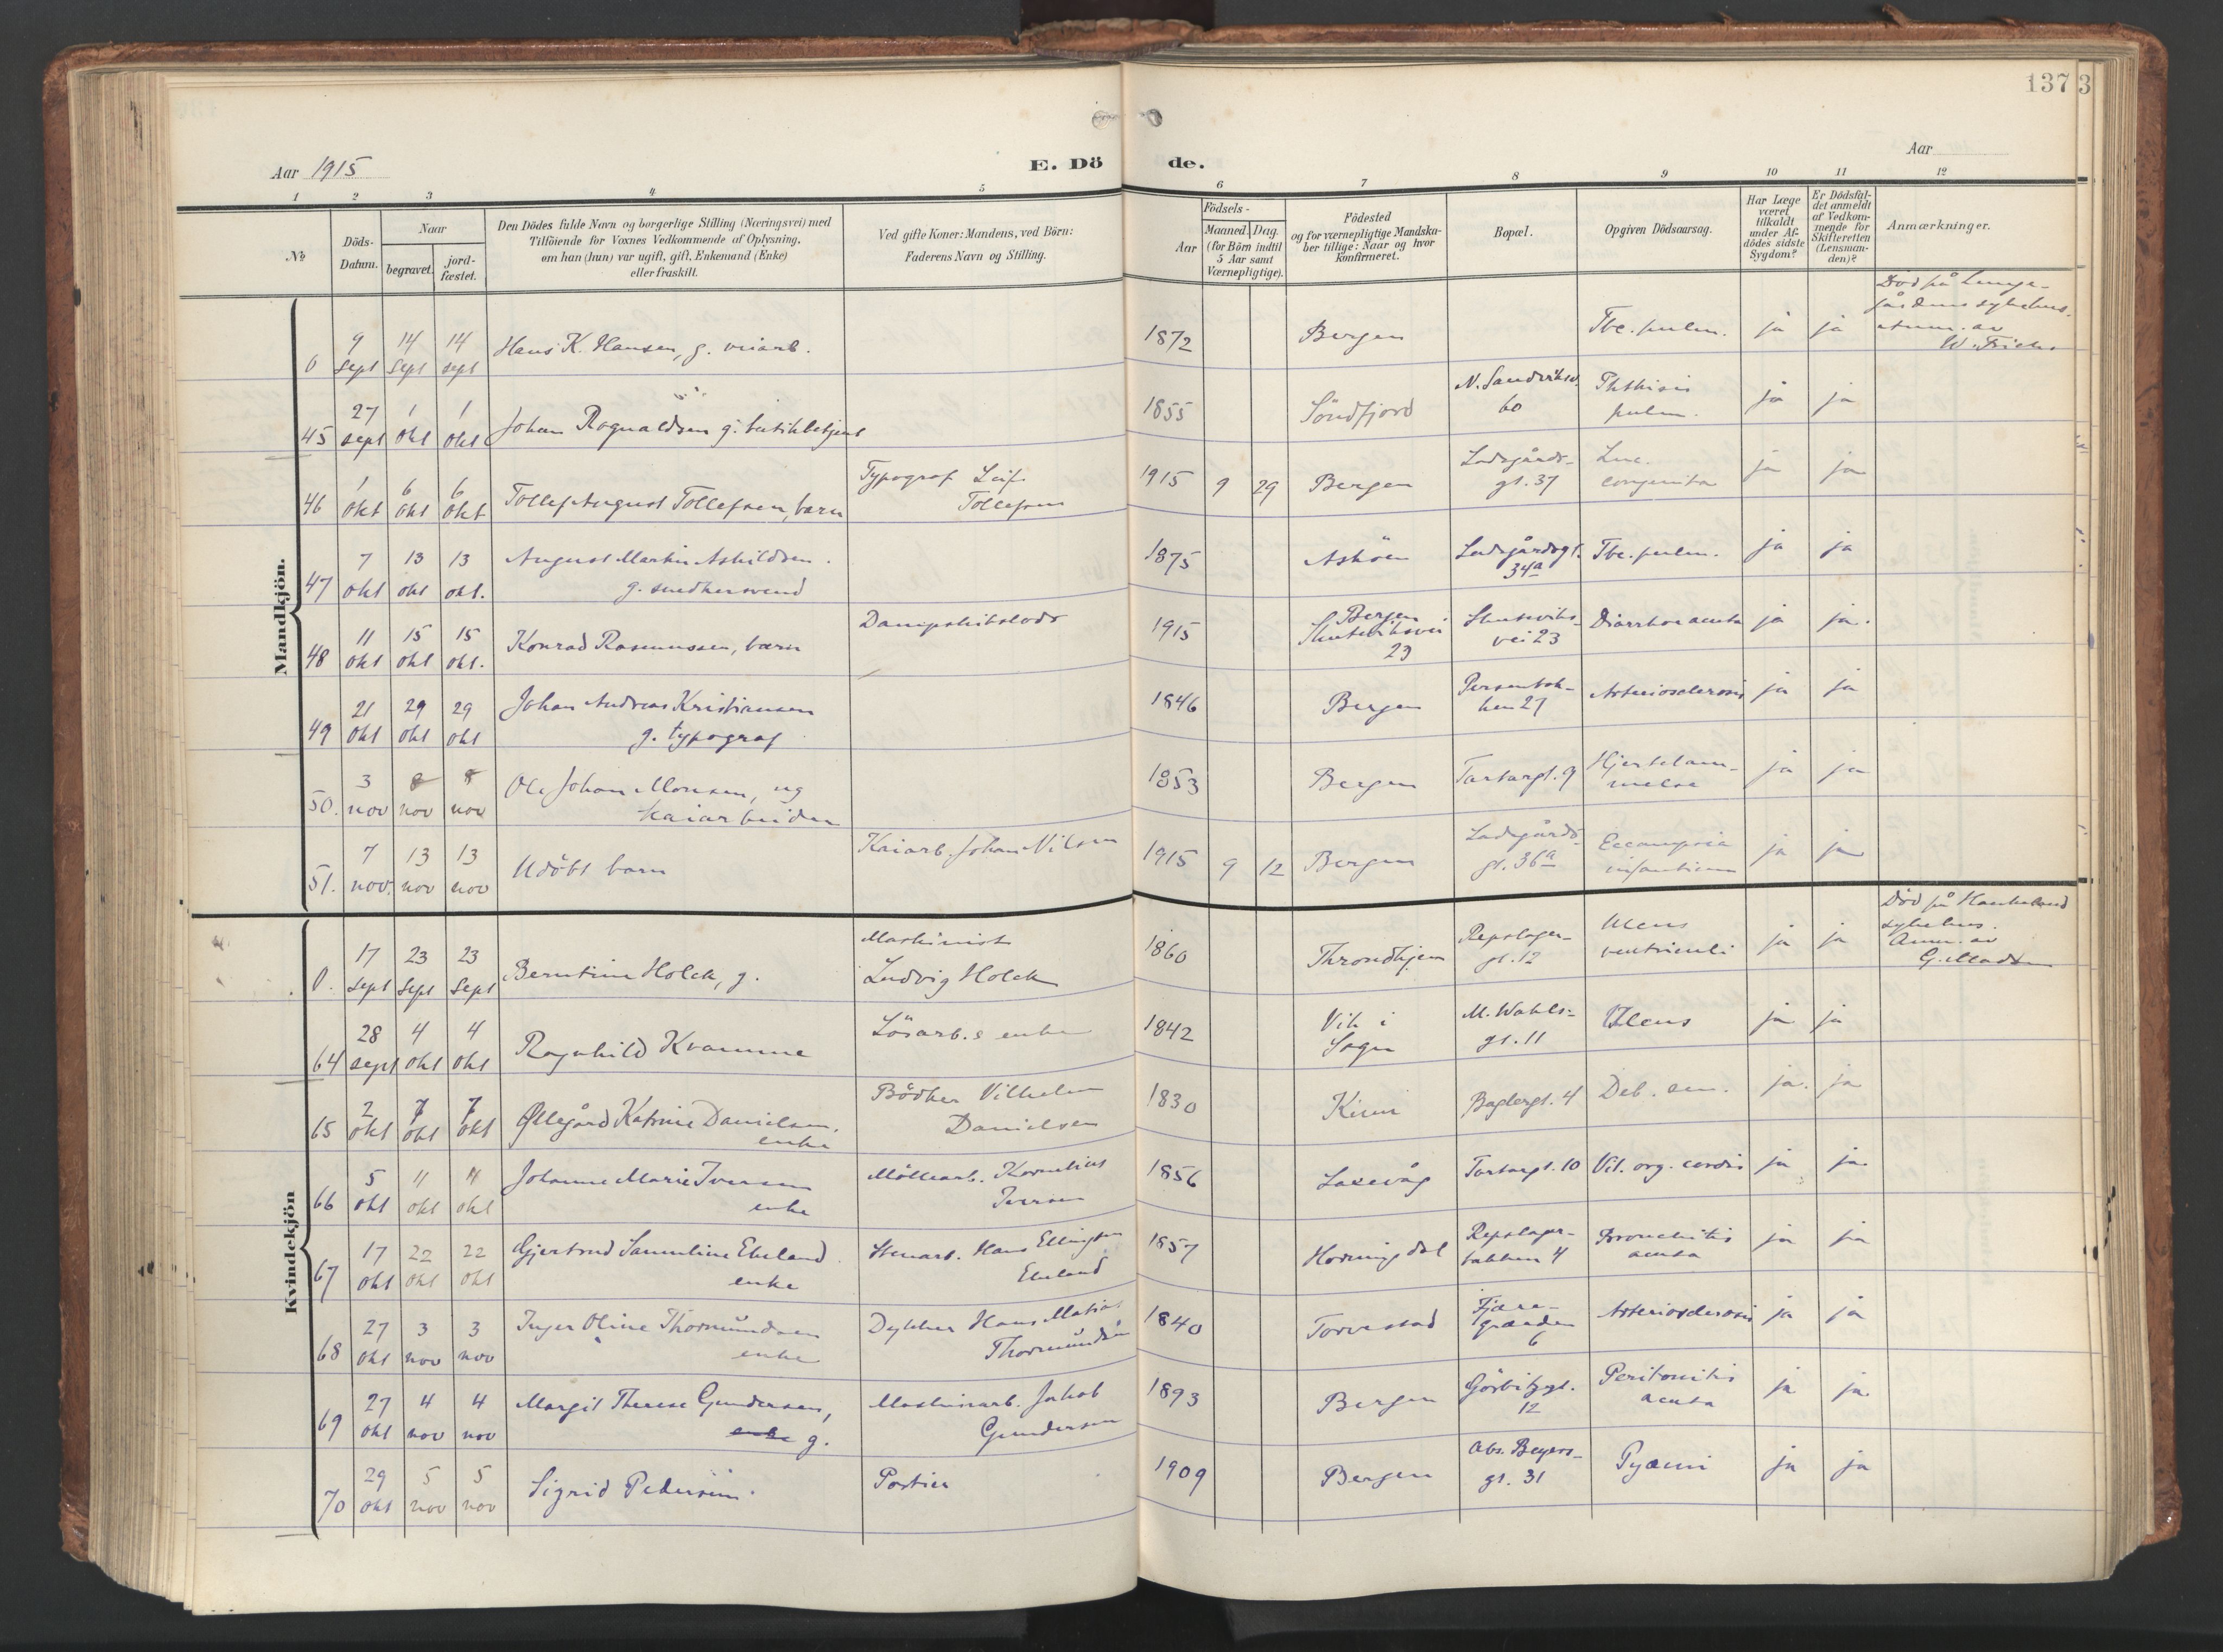 137 3
Aar 1915
E. Dö de.
Aar
1 2 3 4 5 6 7 8 9 10 11 12
No
Döds-
Datum.
Naar
begravet.
jord-
fæstet.
Den Dödes fulde Navn og borgerlige Stilling (Næringsvei) med
Tilföiende for Voxnes Vedkommende af Oplysning,
om han (hun) var ugift, gift, Enkemand (Enke)
eller fraskilt.
Ved gifte Koner: Mandens, ved Börn:
Faderens Navn og Stilling.
Födsels-
Aar
Maaned. Dag.
(for Börn indtil
5 Aar samt
Værnepligtige).
Födested
og for værnepligtige Mandska-
ber tillige: Naar og hvor
Konfirmeret.
Bopæl.
Opgiven Dödsaarsag.
Har Læge
været
tilkaldt
under Af-
dödes sidste
Sygdom?
Er Dödsfal-
det anmeldt
af Vedkom-
mende for
Skifteretten
(Lensman-
den)?
Anmærkninger.
Mandkjön.
0 9 sept 14 sept 14 sept Hans K. Hansen, g. 1872 Bergen Tbc. pulm. ja ja
Död på Lunge-
gårdens sykehus.
anm. av
45 27 sept 1 okt 1 okt Johan Rognaldsen g. butikbetjent 1855 Söndfjord N. Sandviksv. 60 Phthisis pulm. ja ja
46 1 okt 6 okt 6 okt Tollef August Tollefsen, barn Typograf Leif Tollefsen 1915 9 29 Bergen Ladegårds-gt. 37 Lues congenita ja ja
47 7 okt 13 okt 13 okt. August Martin Askildsen. g. snedkersvend 1875 Asköen Ladegårdsgt. 34a Tbc. pulm. ja ja
48 11 okt 15 okt 15 okt. Konrad Rasmussen, barn Dampskibslods 1915 Bergen Skuteviksvei 23 Skuteviks-vei 23 Diarrhoe acuta ja ja.
49 21 okt 29 okt 29 okt Johan Andreas Kristiansen g. typograf 1846 Bergen Persenbak-ken 27 Arteriosclerosis ja ja
50. 3 nov 8 nov 8 nov Ole Johan Monsen, ug kaiarbeider 1853 Bergen Tartargt. 9 Hjertelam-melse ja ja
51. 7 nov. 13 nov 13 nov Udöbt barn Kaiarb. Johan Nilsen 1915 9 12 Bergen Ladegårds-gt. 36a Eccampsia infantium ja ja
Kvindekjön
0. 17 sept 23 sept 23 sept Berntine Holck, g. Maskinist Ludvig Holck 1860 Throndhjem Repslager-gt. 12 Ulcus ventriculi ja ja
Död på Haukeland
sykehus.
Anm. av
G. Madsen
64 28 sept 4 okt 4 okt Ragnhild Kvamme Lösarb.s enke 1842 Vik i Sogn M. Wahls-gt. 11 Ileus ja ja
65 2 okt 7 okt 7 okt Øllegård Katrine Danielsen, enke Bödker Vilhelm Danielsen 1830 Kinn Baglergt. 4 Deb. sen. ja. ja
66 5 okt 11 okt 11 okt Johanne Marie Iversen enke Möllearb. Kornelius Iversen 1856 Laxevåg Tartargt. 10 Vit. org. cordis ja ja
67 17 okt 22 okt 22 okt Gjertrud Samueline Ekeland enke Stenarb. Hans Ellingsen Ekeland 1857 Horningdal Repslager-bakken 4 Bronchitis acuta ja ja
68 27 okt 3 nov 3 nov Inger Oline Thormundsen enke Dykker Hans Matias Thormundsen 1840 Torvestad Fjære-grænden 6 Arteriosclerosis ja ja
69 27 okt 4 nov 4 nov Margit Therese Gundersen, enke g. Maskinarb. Jakob Gundersen 1893 Bergen Görbitzgt. 12 Peritonitis acuta ja ja
70 29 okt 5 nov 5 nov Sigrid Pedersen. Portier 1909 Bergen Abs. Beyers-gt. 31 Pyæmi ja ja